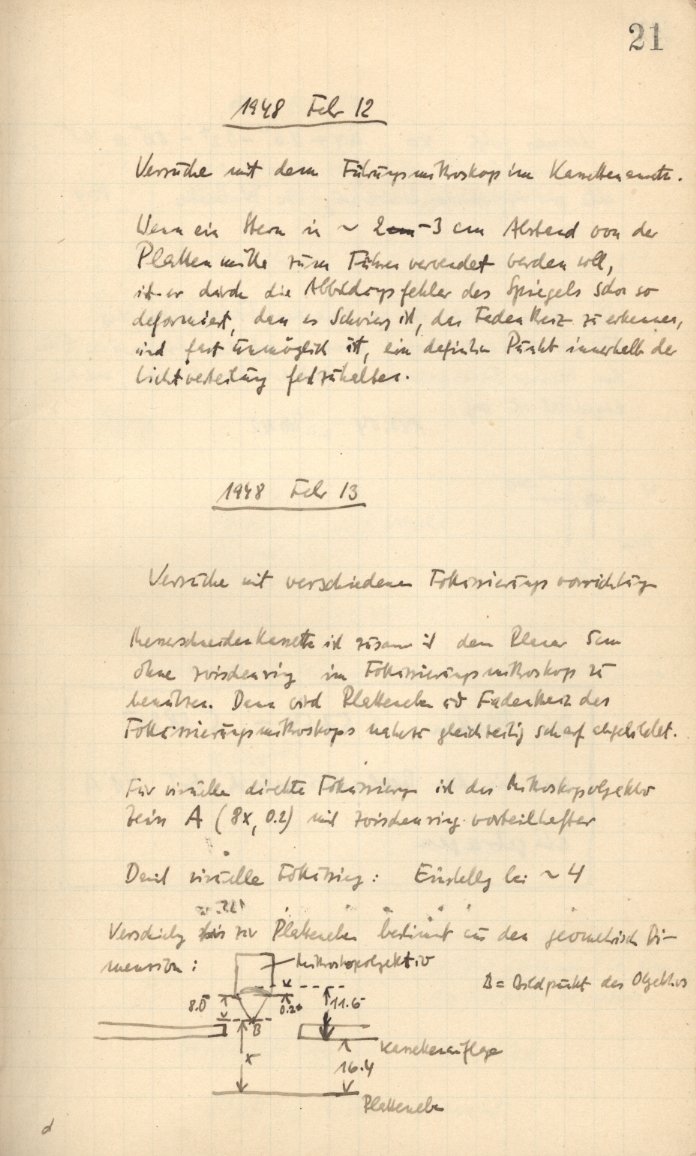 21
1948 Febr 12
Versuche mit dem Führungsmikroskop im Kassettenansatz.
Wenn ein Stern in ~ 2 cm - 3 cm Abstand von der
Plattenmitte zum Führen verwendet werden soll,
ist er durch die Abbildungsfehler des Spiegels schon so
deformiert, dass es schwierig ist, das Fadenkreuz zu erkennen,
und fast unmöglich ist, ein definierten Punkt innerhalb der
Lichtverteilung festzuhalten.
1948 Febr 13
Versuche mit verschiedenen Fokussierungsvorrichtung
Messerschneidenkassette ist zusam mit dem Planar 5cm
ohne Zwischenring im Fokussierungsmikroskop zu
benützen. Dann wird Plattenebene und Fadenkreuz des
Fokussierungsmikroskops nahezu gleichzeitig scharf abgebildet.
Für visuelle direkte Fokussierung ist das Mikroskopobjektiv
Zeiss A (8x, 0.2) mit Zwischenring vorteilhafter
Damit visuelle Fokussierung: Einstellung bei ~ 4
Verschiebung zur Plattenebene bestimmt aus den geometrisch Di-
mension:
Mikroskopobjektiv
B = Bildpunkt des Objektivs
8.0
0.2
11.6
B
x
Kassettenauflage
16.4
Plattenebene